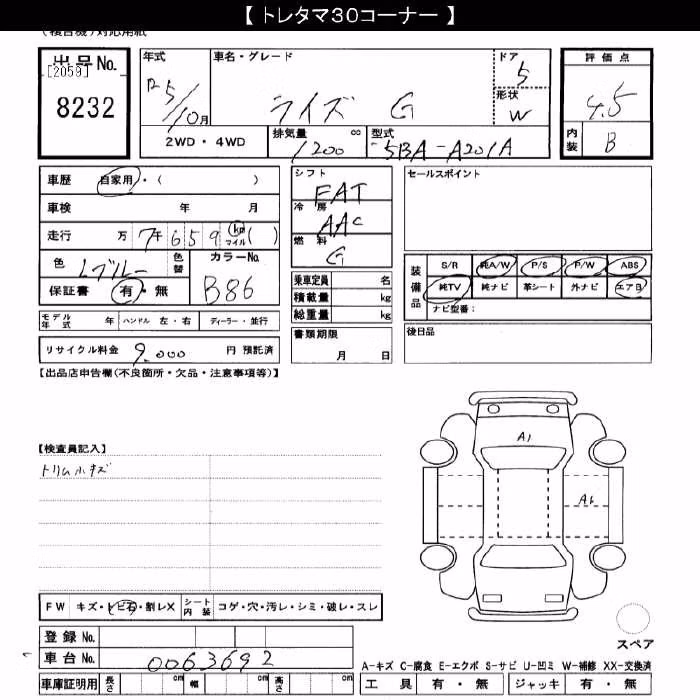 【 トレタマ30コーナー 】
(複合機)対応用紙
出品No.
[2059]
8232
年式
R5/10月
車名・グレード
ライズ G
ドア
5
形状
W
評価点
4.5
内装
B
2WD・4WD
排気量
cc
1200
型式
5BA-A201A
車歴 自家用・( )
車検 年 月
走行 万 7千 6 5 9 km マイル ( )
色 Lブルー
色替
カラーNo.
B86
保証書 有・無
シフト
FAT
冷房
AAC
燃料
G
乗車定員 名
積載量 kg
総重量 kg
セールスポイント
装備品
S/R 純A/W P/S P/W ABS
純TV 純ナビ 革シート 外ナビ エアB
ナビ型番:
モデル年式 年 ハンドル 左・右 ディーラー・並行
リサイクル料金 9,000 円 預託済
書類期限
月 日
後日品
【出品店申告欄(不良箇所・欠品・注意事項等)】
【検査員記入】
トリム小キズ
A1
A1
FW キズ・トビ石・割レX
シート内装 コゲ・穴・汚レ・シミ・破レ・スレ
スペア
登録 No.
車台 No. 0063692
A-キズ C-腐食 E-エクボ S-サビ U-凹ミ W-補修 XX-交換済
車庫証明用 長さ cm 幅 cm 高さ cm
工具 有・無 ジャッキ 有・無